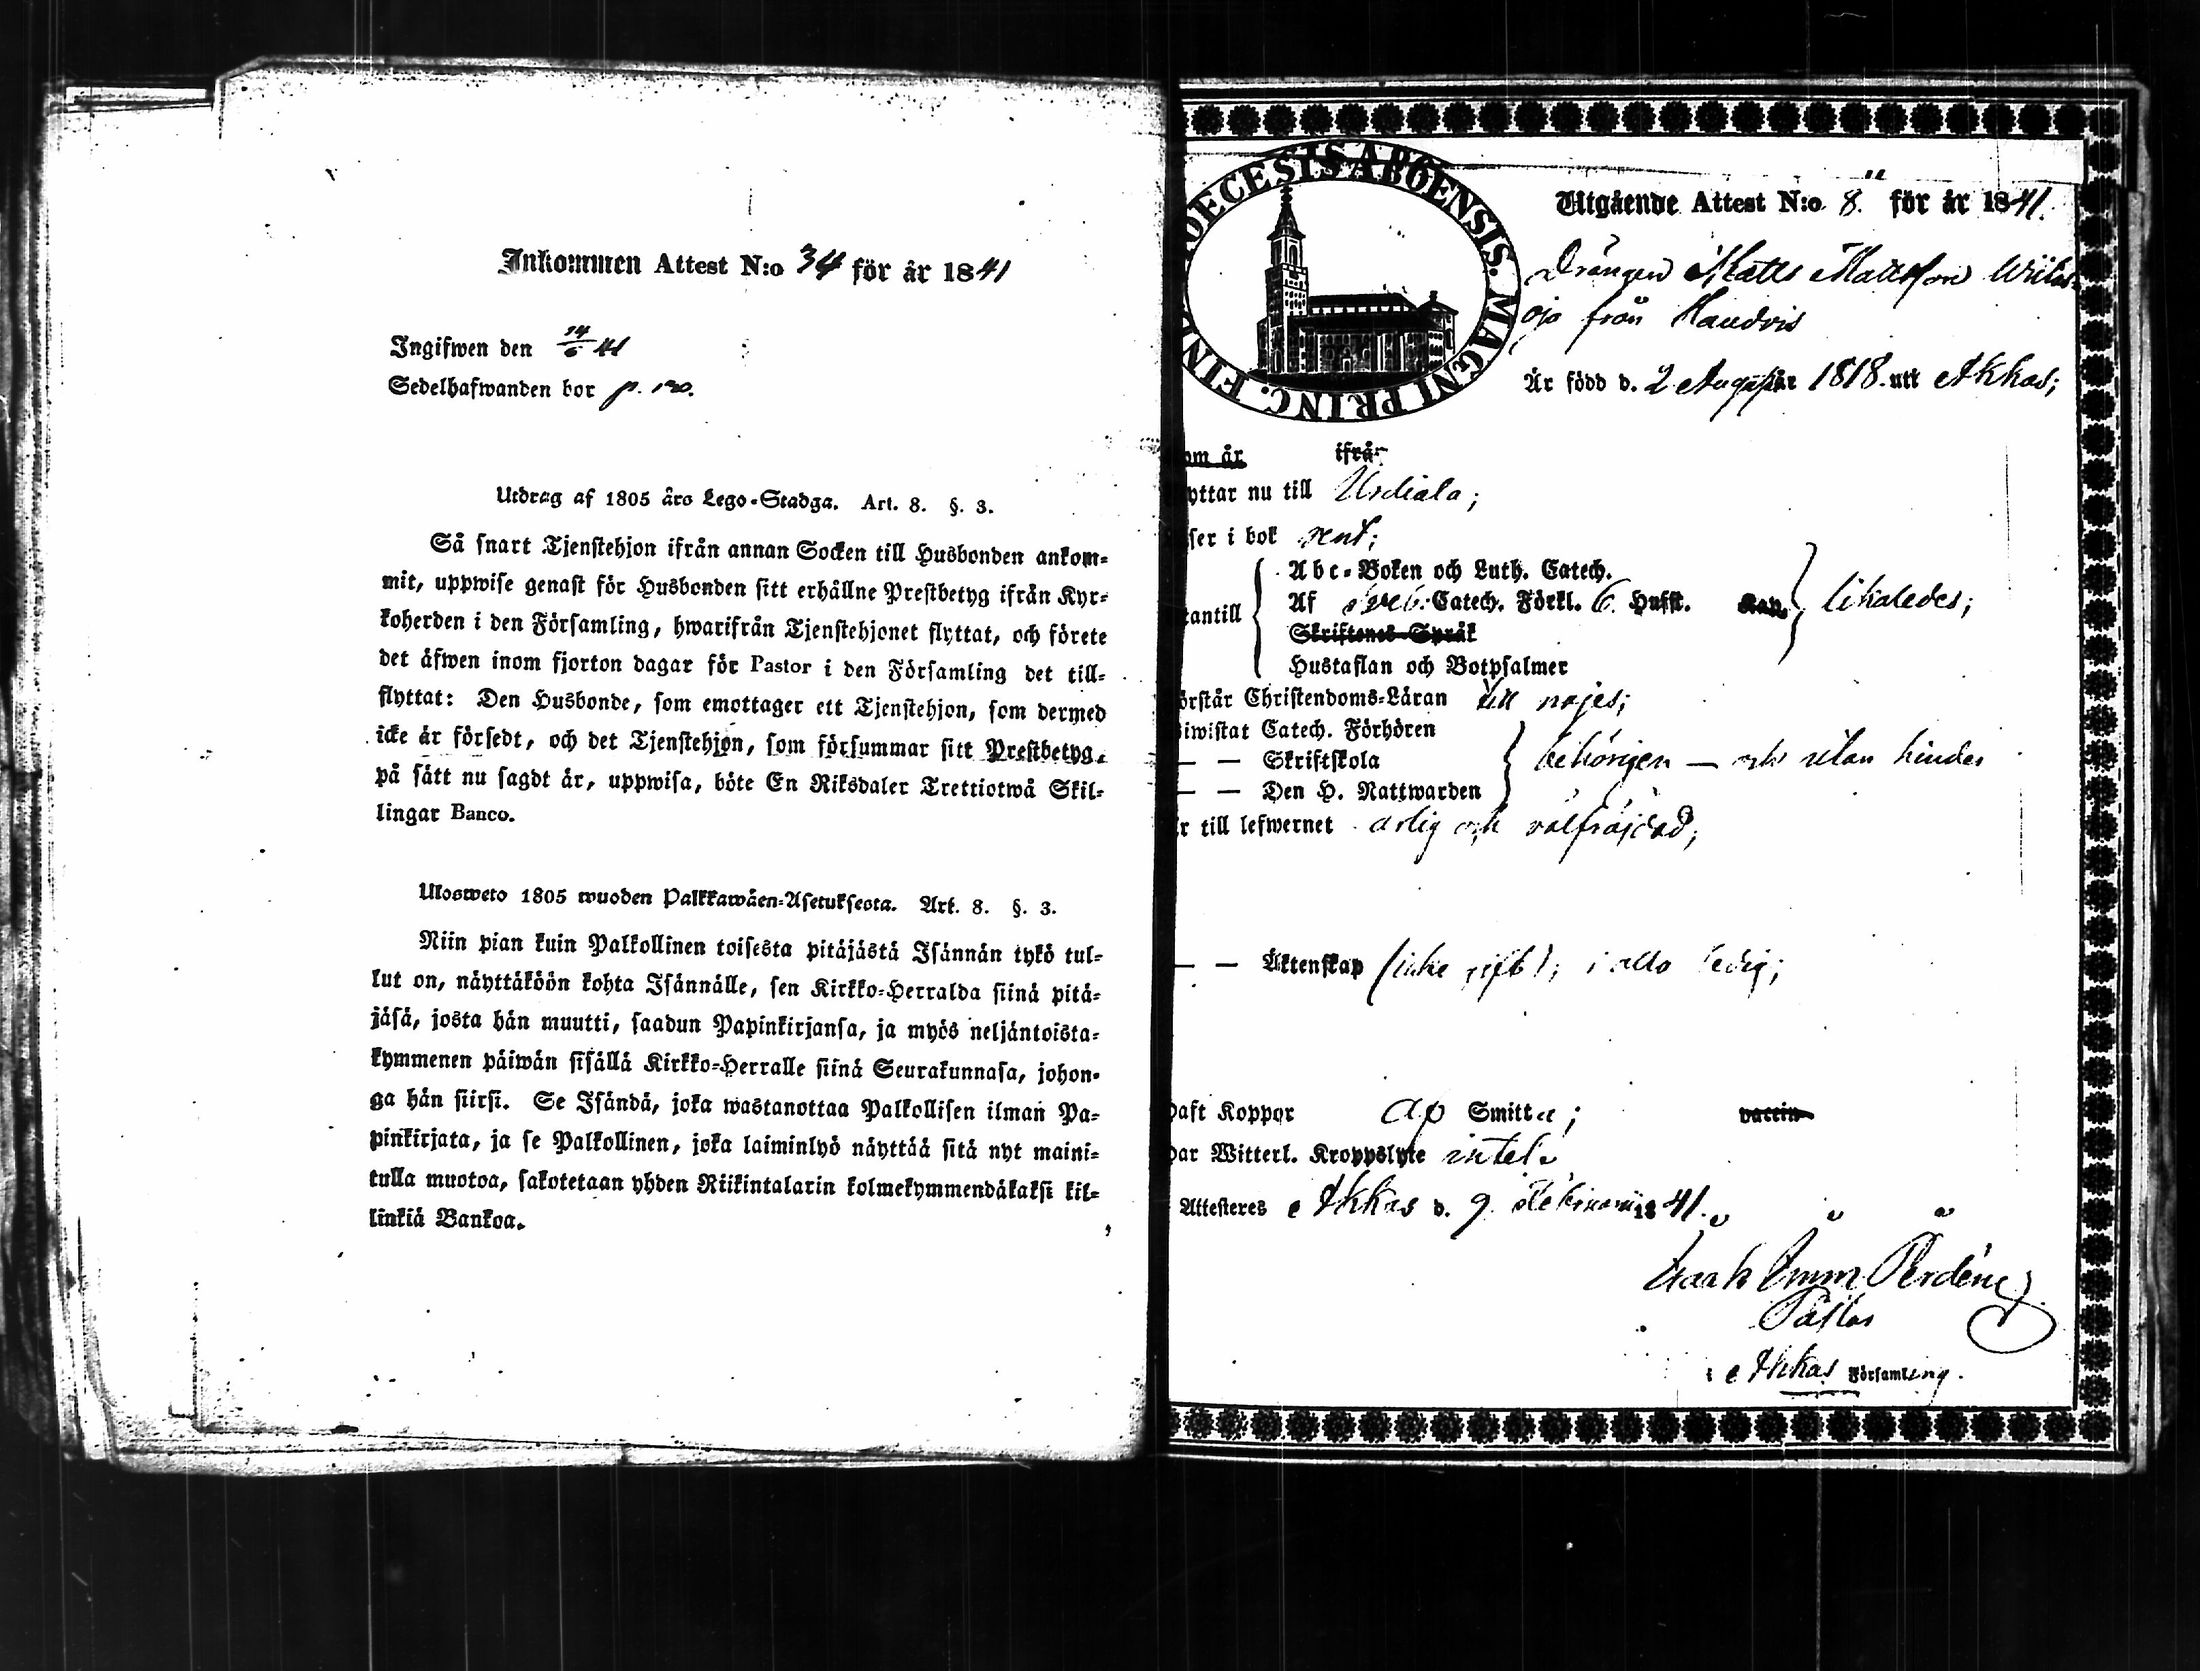 Inkommen Attest N:o 34 för år 1841
Ingifwen den 14/6 41
Sedelhafwanden bor p. 130.
Utdrag af 1805 års Lego-Stadga. Art. 8. §. 3.
Så snart Tjenstehjon ifrån annan Socken till Husbonden ankom-
mit, uppwise genast för Husbonden sitt erhållne Prestbetyg ifrån Kyr-
koherden i den Församling, hwarifrån Tjenstehjonet flyttat, och förete
det äfwen inom fjorton dagar för Pastor i den Församling det till-
flyttat: Den Husbonde, som emottager ett Tjenstehjon, som dermed
icke är försedt, och det Tjenstehjon, som försummar sitt Prestbetyg,
på sätt nu sagdt är, uppwisa, böte En Riksdaler Trettiotwå Skil-
lingar Banco.
Ulosweto 1805 wuoden Palkkawäen-Asetuksesta. Art. 8. §. 3.
Niin pian kuin Palkollinen toisesta pitäjästä Isännän tykö tul-
lut on, näyttäköön kohta Isännälle, sen Kirkko-Herralda siinä pitä-
jäsä, josta hän muutti, saadun Papinkirjansa, ja myös neljäntoista-
kymmenen päiwän sisällä Kirkko-Herralle siinä Seurakunnasa, johon-
ga hän siirsi. Se Isändä, joka wastanottaa Palkollisen ilman Pa-
pinkirjata, ja se Palkollinen, joka laiminlyö näyttää sitä nyt maini-
tulla muotoa, sakotetaan yhden Riikintalarin kolmekymmendäkaksi kil-
linkiä Bankoa.
DIOECESIS ABOËNSIS. MAGNI PRINC. FINL.
Utgående Attest N:o 8. för år 1841.
Drängen Matts Mattsson
oja från
Är född d. 2 Augusti år 1818. uti Akkas;
om är ifrån
yttar nu till Urdiala;
ser i bok rent;
Abc-Boken och Luth. Catech.
Af Sveb. Catech. Förkl. 6. Hufst. Kap. likaledes;
Skriftenes Språk
antill
Hustaflan och Botpsalmer
örstår Christendoms-Läran till nöjes;
iwistat Catech. Förhören
— — Skriftskola behörigen — och utan hinder
— — Den H. Nattwarden
r till lefwernet ärlig och välfräjdad;
— — Äktenskap (icke gift); i allo ledig;
aft Koppor af Smitta; vaccin
ar Witterl. Kroppslyte intet.
Attesteres Akkas d. 9. Februarii 1841.
Isaak Imm
Pastor
i Akkas Församling.